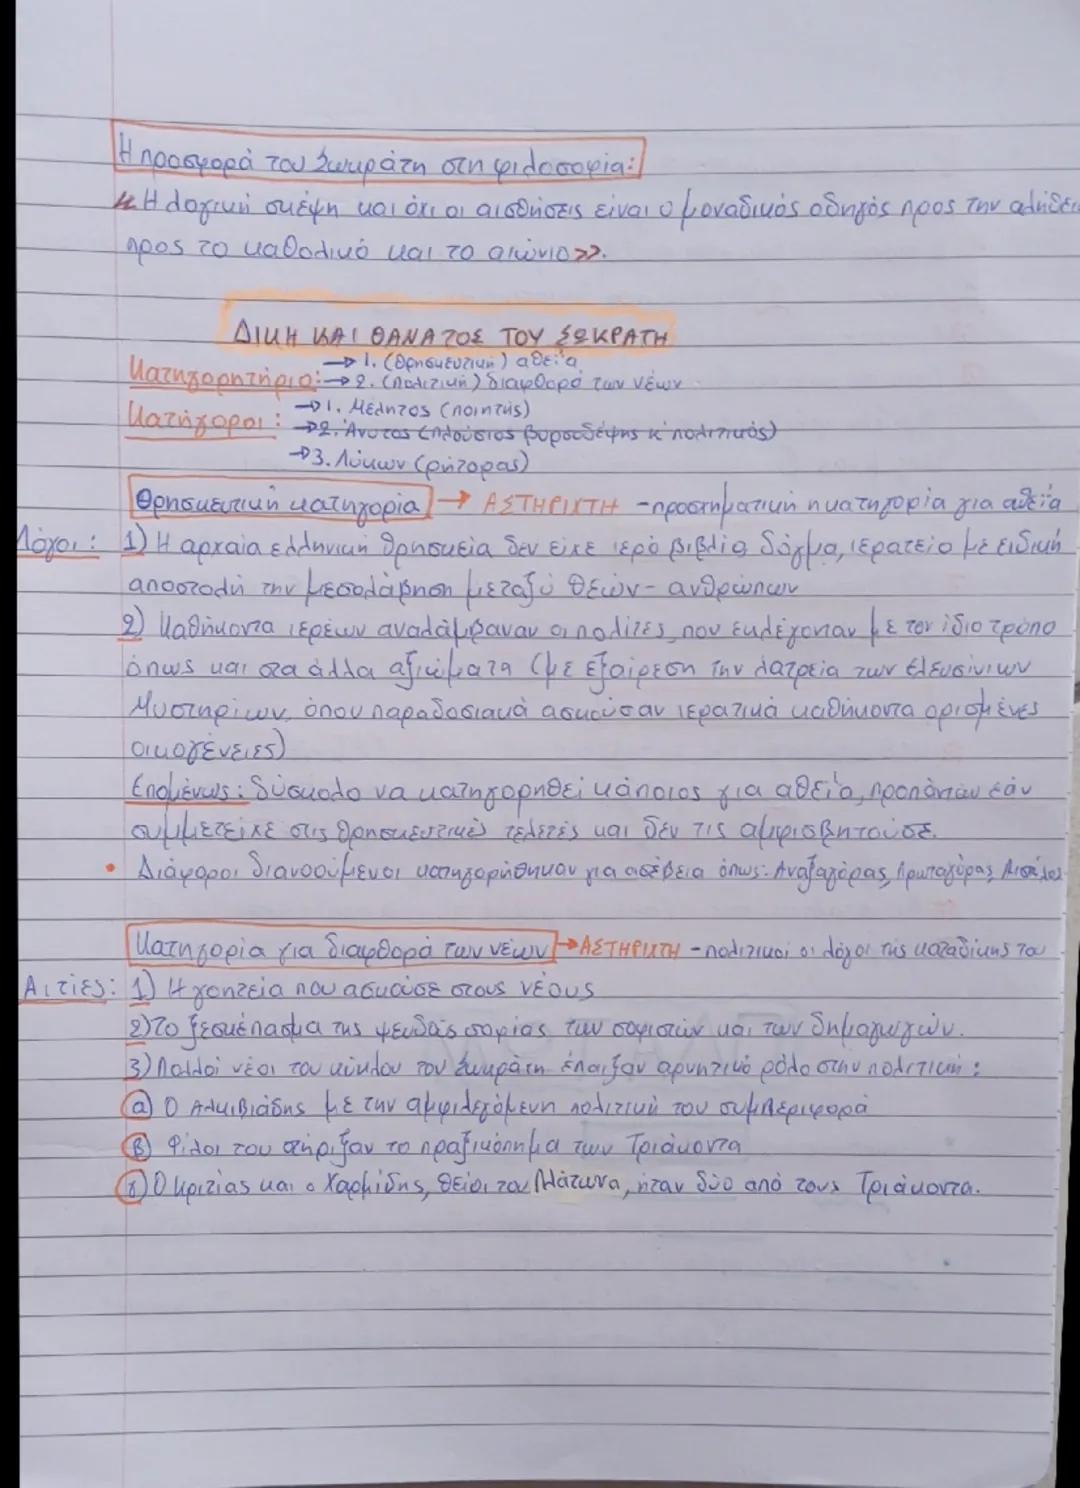 Η προσφορά του Σωκράτη στη φιλοσοφία:
«Η λογική σκέψη και όχι οι αισθήσεις είναι ο μοναδικός οδηγός προς την
προς το καθολικό και το αιώνιο».
ΔΙΚΗ ΚΑΙ ΘΑΝΑΤΟΣ ΤΟΥ ΣΩΚΡΑΤΗ
→ 1. (θρησκευτική) αθεΐα
Κατηγορητήριο: → 2. (πολιτική) διαφθορά των νέων
Κατήγοροι: → 1. Μέλητος (ποιητής)
→ 2. Άνυτος (πλούσιος βυρσοδέψης κ' πολιτικός)
→ 3. Λύκων (ρήτορας)
Θρησκευτική κατηγορία → ΑΣΤΗΡΙΧΤΗ - προσχηματική η κατηγορία για αθεΐα
Λόγοι: 1) Η αρχαία ελληνική θρησκεία δεν είχε ιερό βιβλίο, δόγμα, ιερατείο με ειδική
αποστολή την μεσολάβηση μεταξύ θεών - ανθρώπων
2) Καθήκοντα ιερέων αναλάμβαναν οι πολίτες, που εκλέγονταν με τον ίδιο τρόπο
όπως και στα άλλα αξιώματα (με εξαίρεση την λατρεία των Ελευσίνιων
Μυστηρίων, όπου παραδοσιακά ασκούσαν ιερατικά καθήκοντα ορισμένες
οικογένειες)
Επομένως: δύσκολο να κατηγορηθεί κάποιος για αθεΐα, προπάντων εάν
συμμετείχε στις θρησκευτικές τελετές και δεν τις αμφισβητούσε.
• Διάφοροι διανοούμενοι κατηγορήθηκαν για ασέβεια όπως: Αναξαγόρας, Πρωταγόρας,
Κατηγορία για διαφθορά των νέων → ΑΣΤΗΡΙΧΤΗ - πολιτικοί οι λόγοι της καταδίκης του
Αιτίες: 1) Η γοητεία που ασκούσε στους νέους
2) Το ξεσκέπασμα της ψευδούς σοφίας των σοφιστών και των δημαγωγών.
3) Πολλοί νέοι του κύκλου του Σωκράτη έπαιξαν αρνητικό ρόλο στην πολιτική:
α) Ο Αλκιβιάδης με την αμφιλεγόμενη πολιτική του συμπεριφορά
β) Φίλοι του στήριξαν το πραξικόπημα των Τριάκοντα
γ) Ο Κριτίας και ο Χαρμίδης, θείοι του Πλάτωνα, ήταν δύο από τους Τριάκοντα.